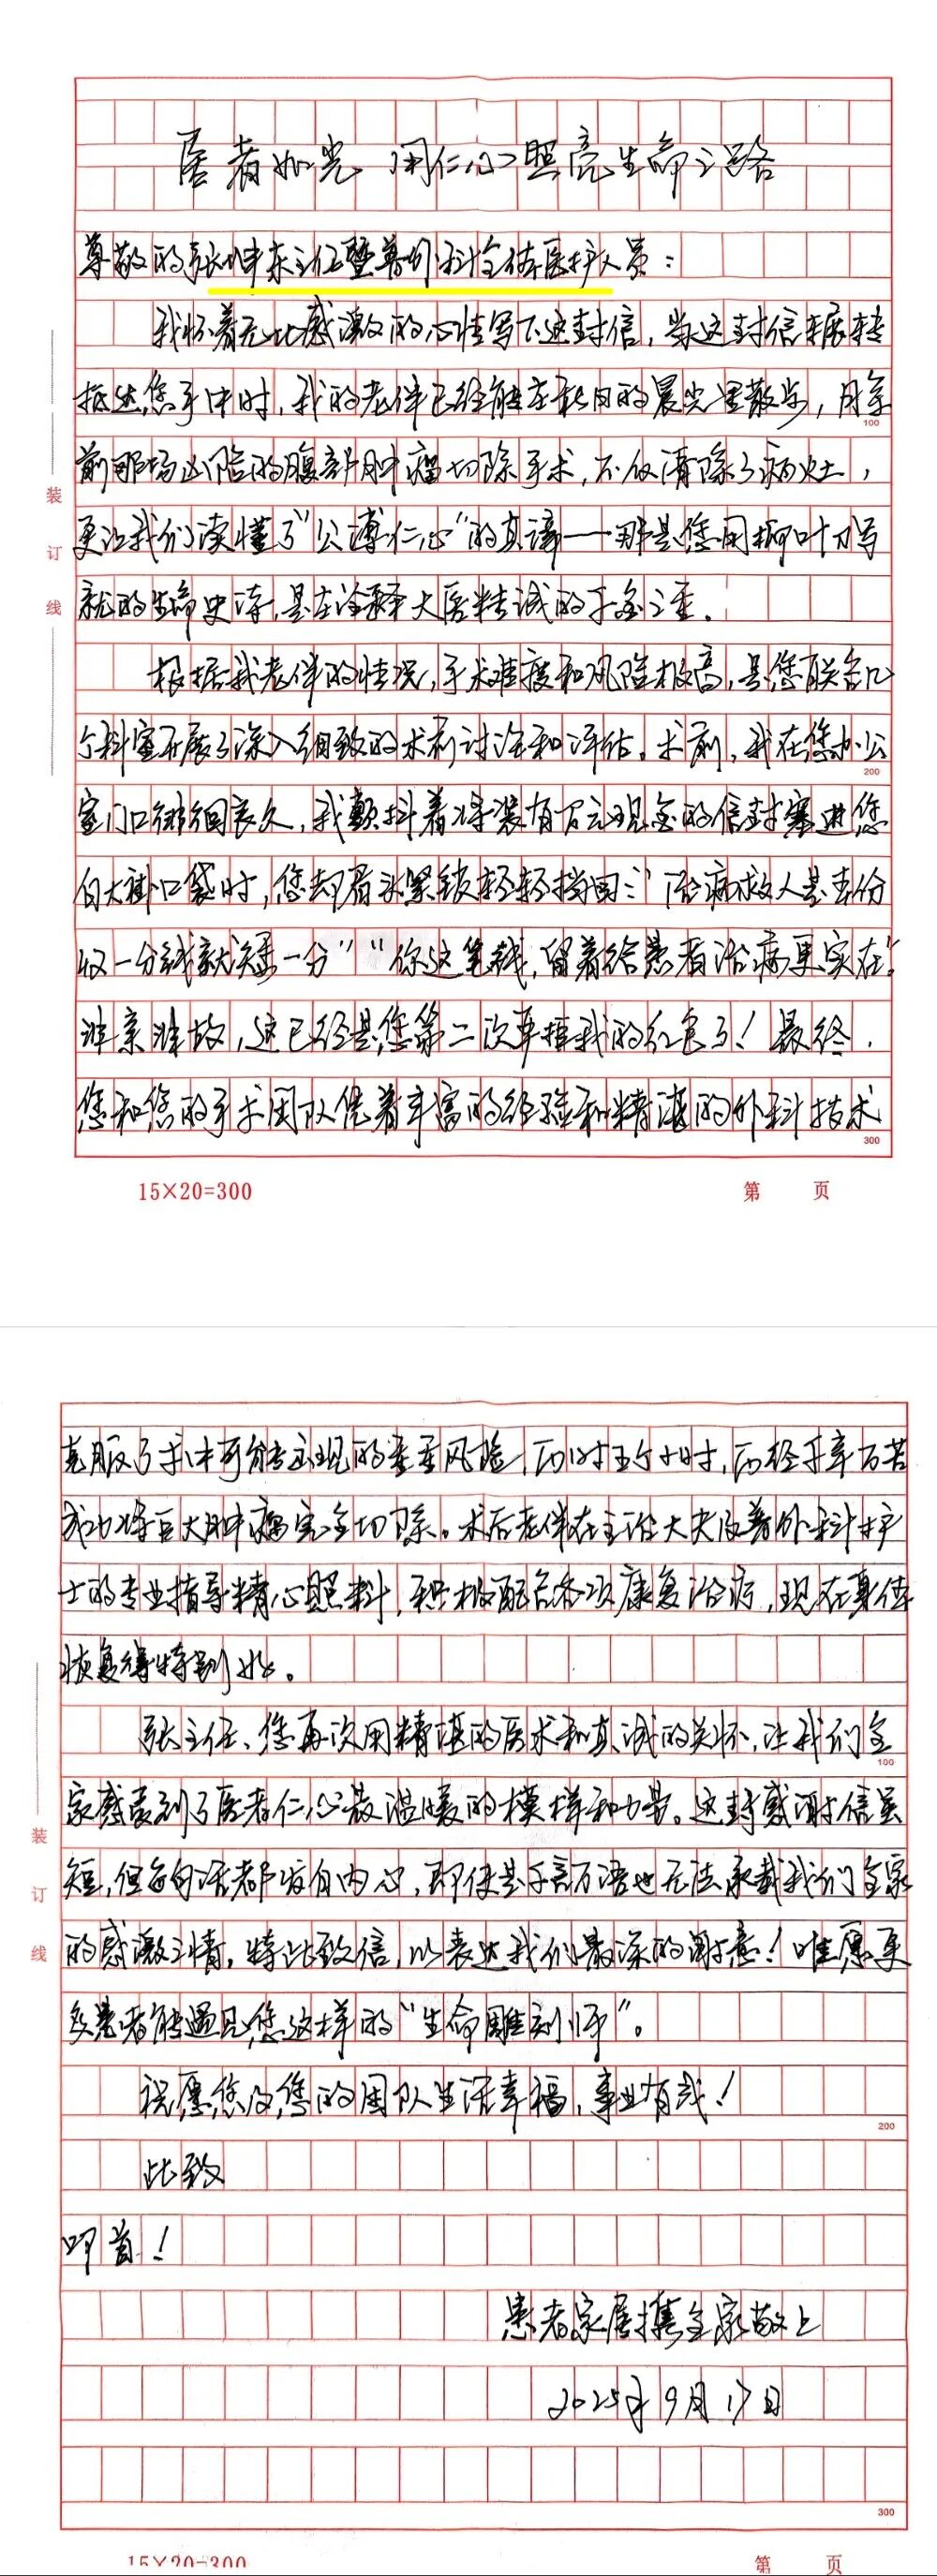 医者如光 用仁心照亮生命之路
尊敬的张坤东主任暨普外科全体医护人员：
我怀着无比感激的心情写下这封信，当这封信辗转
抵达您手中时，我的老伴已经能在秋日的晨光里散步，月余
前那场凶险的腹部肿瘤切除手术，不仅清除了病灶，
更让我们读懂了“公溥仁心”的真谛——那是您用柳叶刀写
就的生命史诗，是在诠释大医精诚的千金之重。
根据我老伴的情况，手术难度和风险极高，是您联合几
个科室开展了深入细致的术前讨论和评估。术前，我在您办公
100
200
室门口徘徊良久，我颤抖着将装有万元现金的信封塞进您
白大褂口袋时，您却眉头紧锁轻轻挡回：“治病救人是本份
收一分钱就矮一分”“你这笔钱，留着给患者治病更实在”
非亲非故，这已经是您第二次拿掉我的红包了！最终，
您和您的手术团队凭着丰富的经验和精湛的外科技术
300
装
订
线
15×20=300
第 页
克服了术中可能出现的重重风险，历时五个小时，历经千辛万苦
成功将巨大肿瘤完全切除。术后老伴在主治大夫及普外科护
士的专业指导精心照料，积极配合各项康复治疗，现在身体
恢复得特别好。
张主任、您再次用精湛的医术和真诚的关怀，让我们全
100
家感受到了医者仁心最温暖的模样和力量。这封感谢信虽
短，但每句话都发自内心，即使是千言万语也无法承载我们全家
的感激之情，特此致信，以表达我们最深的谢意！唯愿更
多患者能遇见您这样的“生命雕刻师”。
祝愿您及您的团队生活幸福，事业有成！
200
此致
叩首！
患者家属携全家敬上
2025年9月17日
300
装
订
线
15×20=300
第 页